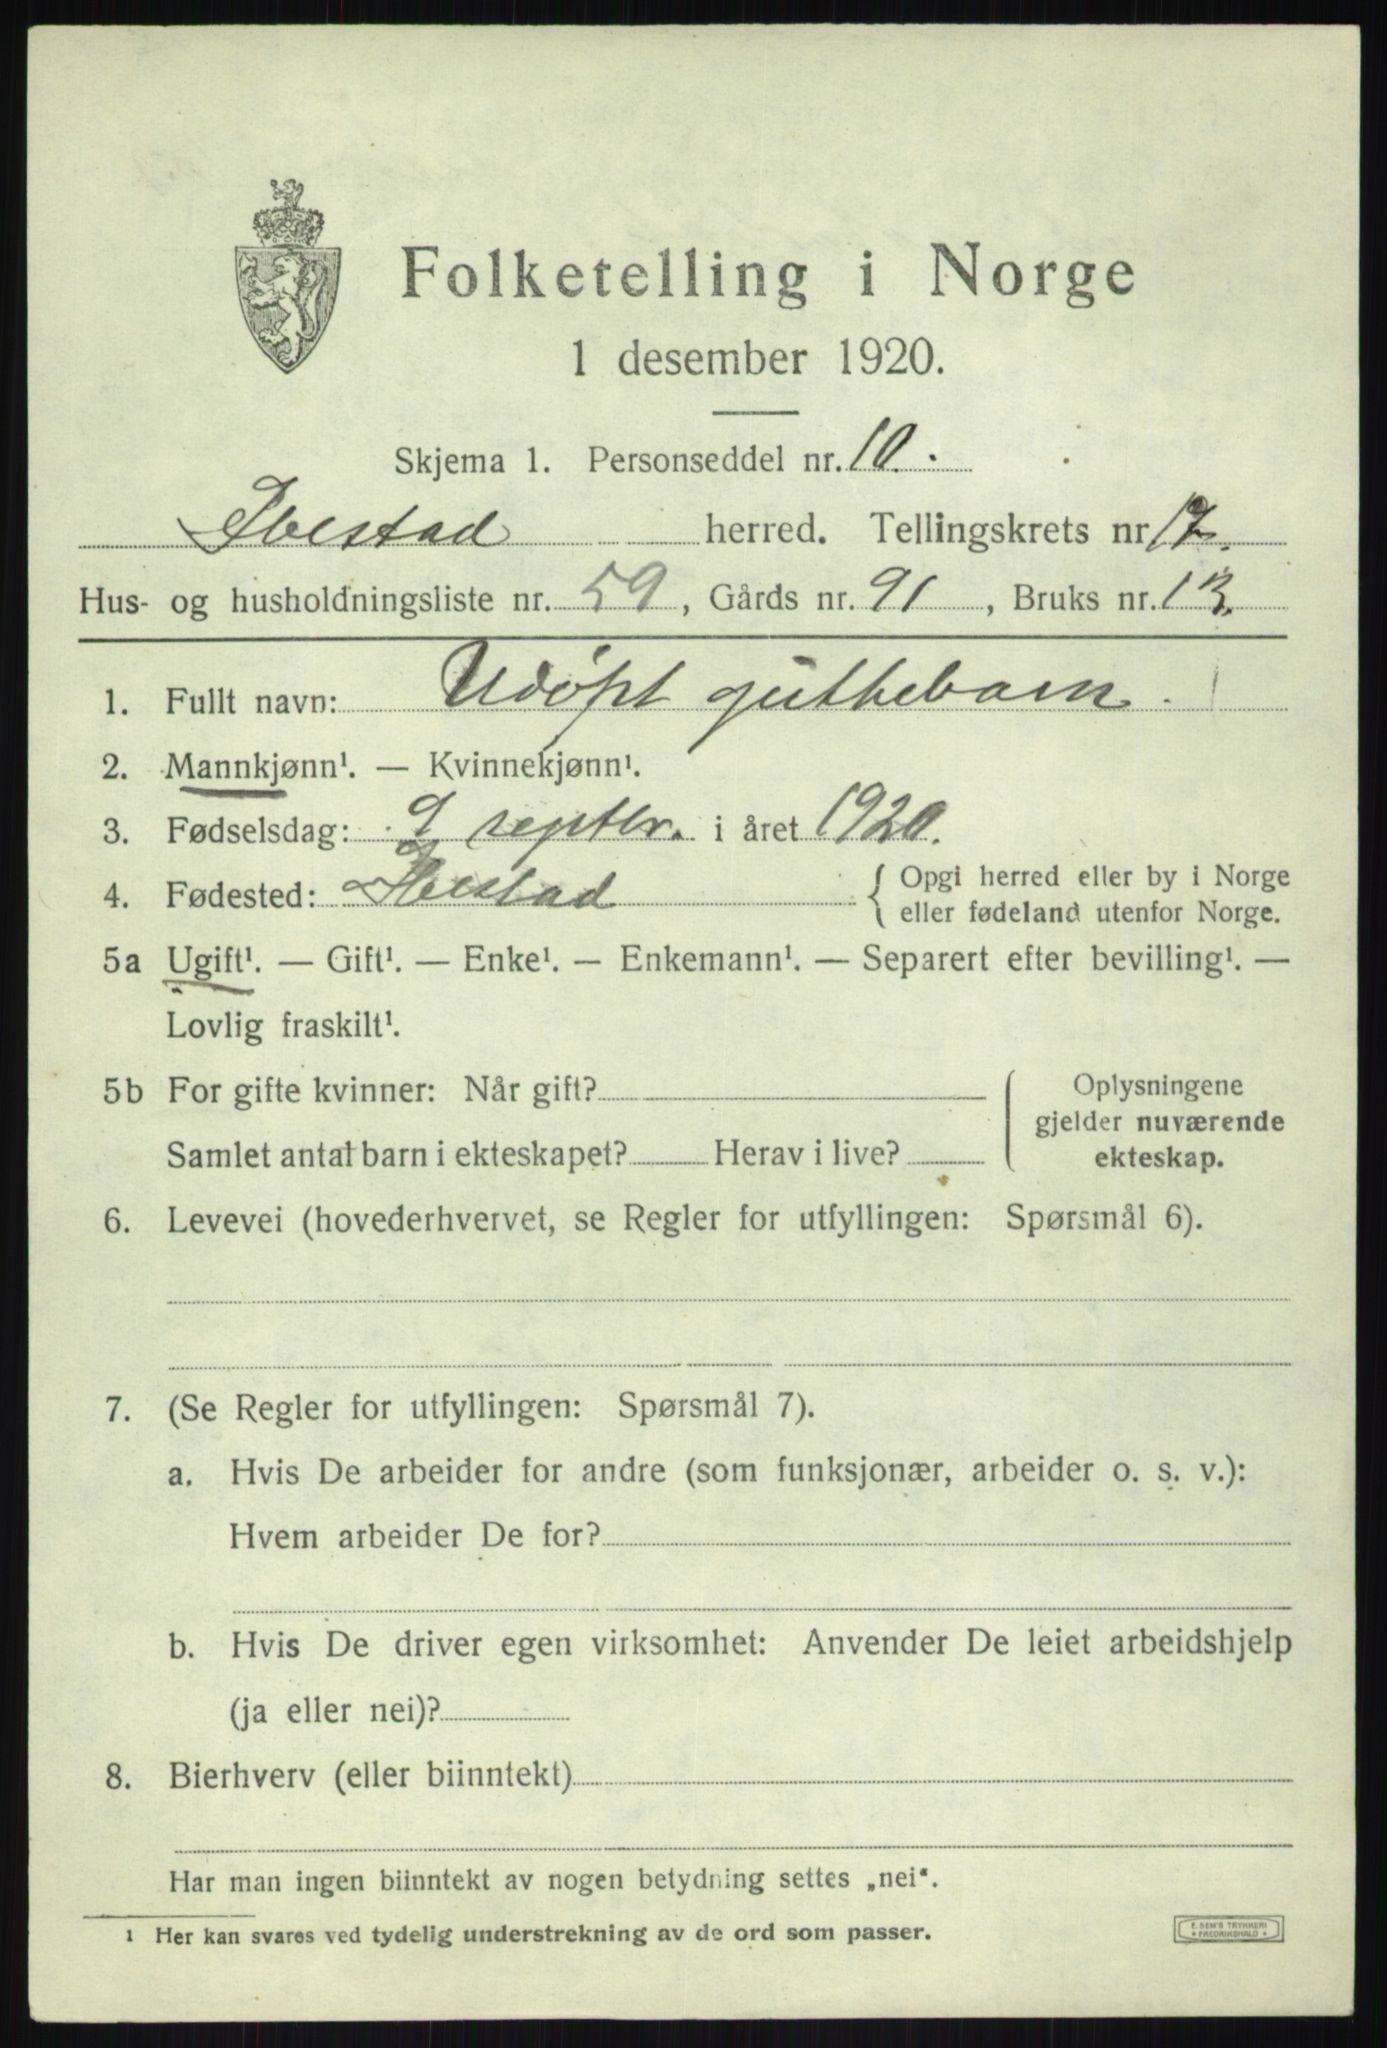 Folketelling i Norge
1 desember 1920.
Skjema 1. Personseddel nr. 10.
Ibestad herred. Tellingskrets nr
Hus- og husholdningsliste nr. 59, Gårds nr. 91, Bruks nr. 13.
1. Fullt navn: Udøpt guttebarn.
2. Mannkjønn¹. — Kvinnekjønn¹.
3. Fødselsdag: 9 septbr. i året 1920.
4. Fødested: Ibestad { Opgi herred eller by i Norge
eller fødeland utenfor Norge.
5a Ugift¹. — Gift¹. — Enke¹. — Enkemann¹. — Separert efter bevilling¹. —
Lovlig fraskilt¹.
5b For gifte kvinner: Når gift?
Samlet antal barn i ekteskapet? Herav i live?
Oplysningene
gjelder nuværende
ekteskap.
6. Levevei (hovederhvervet, se Regler for utfyllingen: Spørsmål 6).
7. (Se Regler for utfyllingen: Spørsmål 7).
a. Hvis De arbeider for andre (som funksjonær, arbeider o. s. v.):
Hvem arbeider De for?
b. Hvis De driver egen virksomhet: Anvender De leiet arbeidshjelp
(ja eller nei)?
8. Bierhverv (eller biinntekt)
Har man ingen biinntekt av nogen betydning settes „nei“.
¹ Her kan svares ved tydelig understrekning av de ord som passer.
E. SEM'S TRYKKERI
FREDRIKSHALD